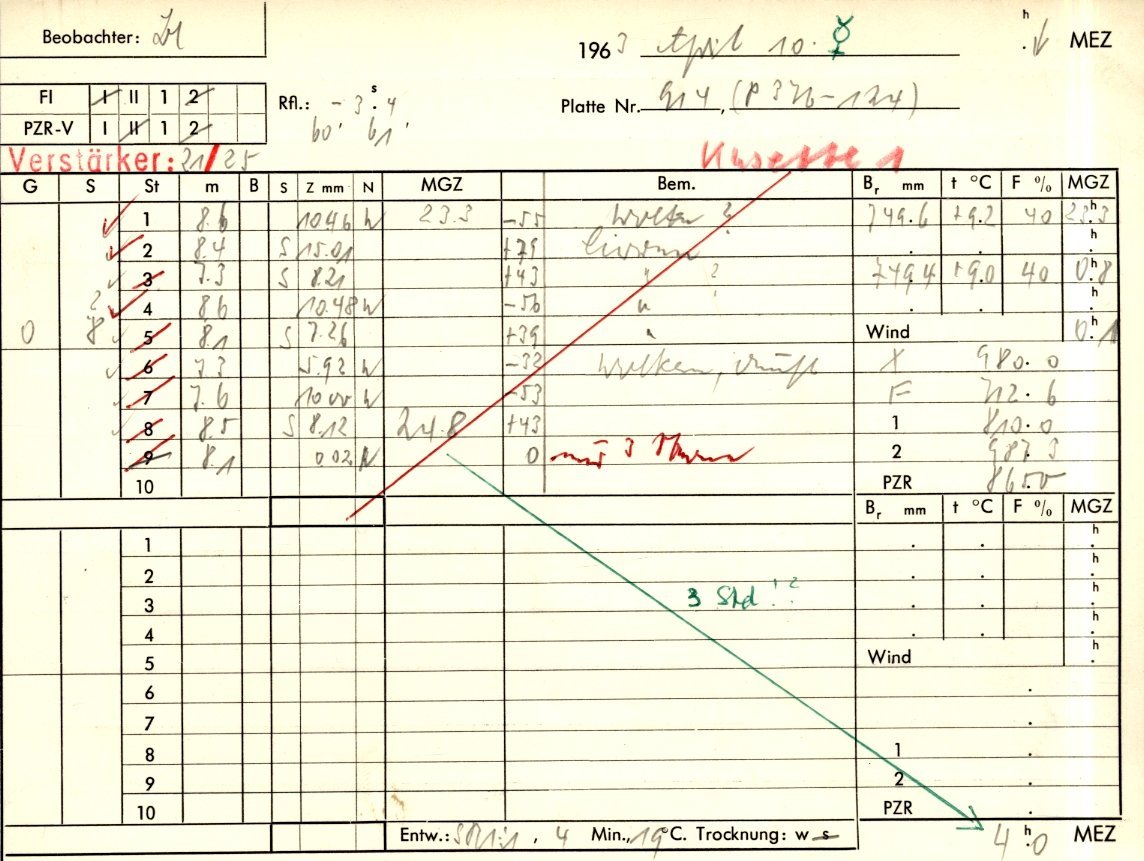 Beobachter:
1963 April 10. ☿ h . ↓ MEZ
FI I II 1 2
Rfl.: - 3ˢ.4
PZR-V I II 1 2
60. 61.
Platte Nr. 914, (P 376-124)
Verstärker: 21/25
G S St m B S Z mm N MGZ Bem. Br mm t °C F % MGZ
1 8.6 10.46 N 23.3 -55 Wolken ? 749.6 +9.2 40 23.h3
2 8.4 S 15.01 +79 . . h.
3 7.3 S 8.21 +43 " ? 749.4 +9.0 40 0.h8
? 4 8.6 10.48 N -56 " . . h.
0 8 5 8.1 S 7.26 +39 " Wind 0.h1
6 7.3 5.92 N -32 Wolken, X 980.0
7 7.6 10.00 N -53 F 712.6
8 8.5 S 8.12 24.8 +43 1 810.0
9 8.1 0.02 N 0 nur 3 2 987.3
10 PZR
Br mm t °C F % MGZ
1 . . h.
2 . . h.
3 3 Std !? . . h.
4 . . h.
5 Wind h.
6 .
7 .
8 1 .
9 2 .
10 PZR .
Entw.: , 4 Min., 19°C. Trocknung: w s 4h.0 MEZ